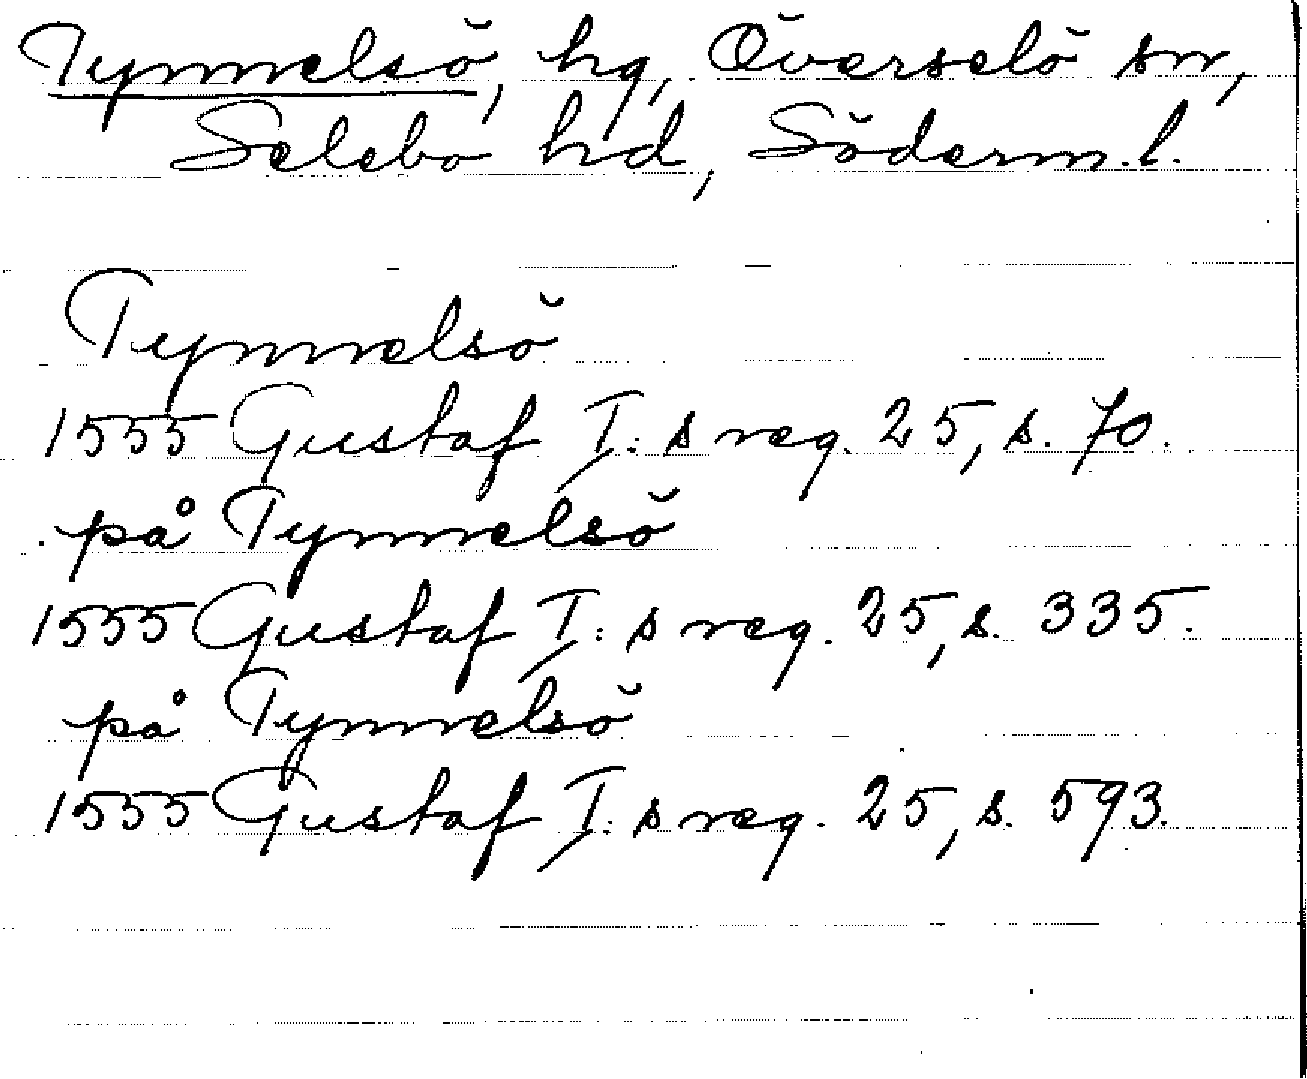 Tynnelsö, hg, Överselö sn,
Selebo hd, Söderm.l.
Tynnelsö
1555 Gustaf I:s reg. 25, s. 70.
på Tynnelsö
1555 Gustaf I:s reg. 25, s. 335.
på Tynnelsö
1555 Gustaf I:s reg. 25, s. 593.